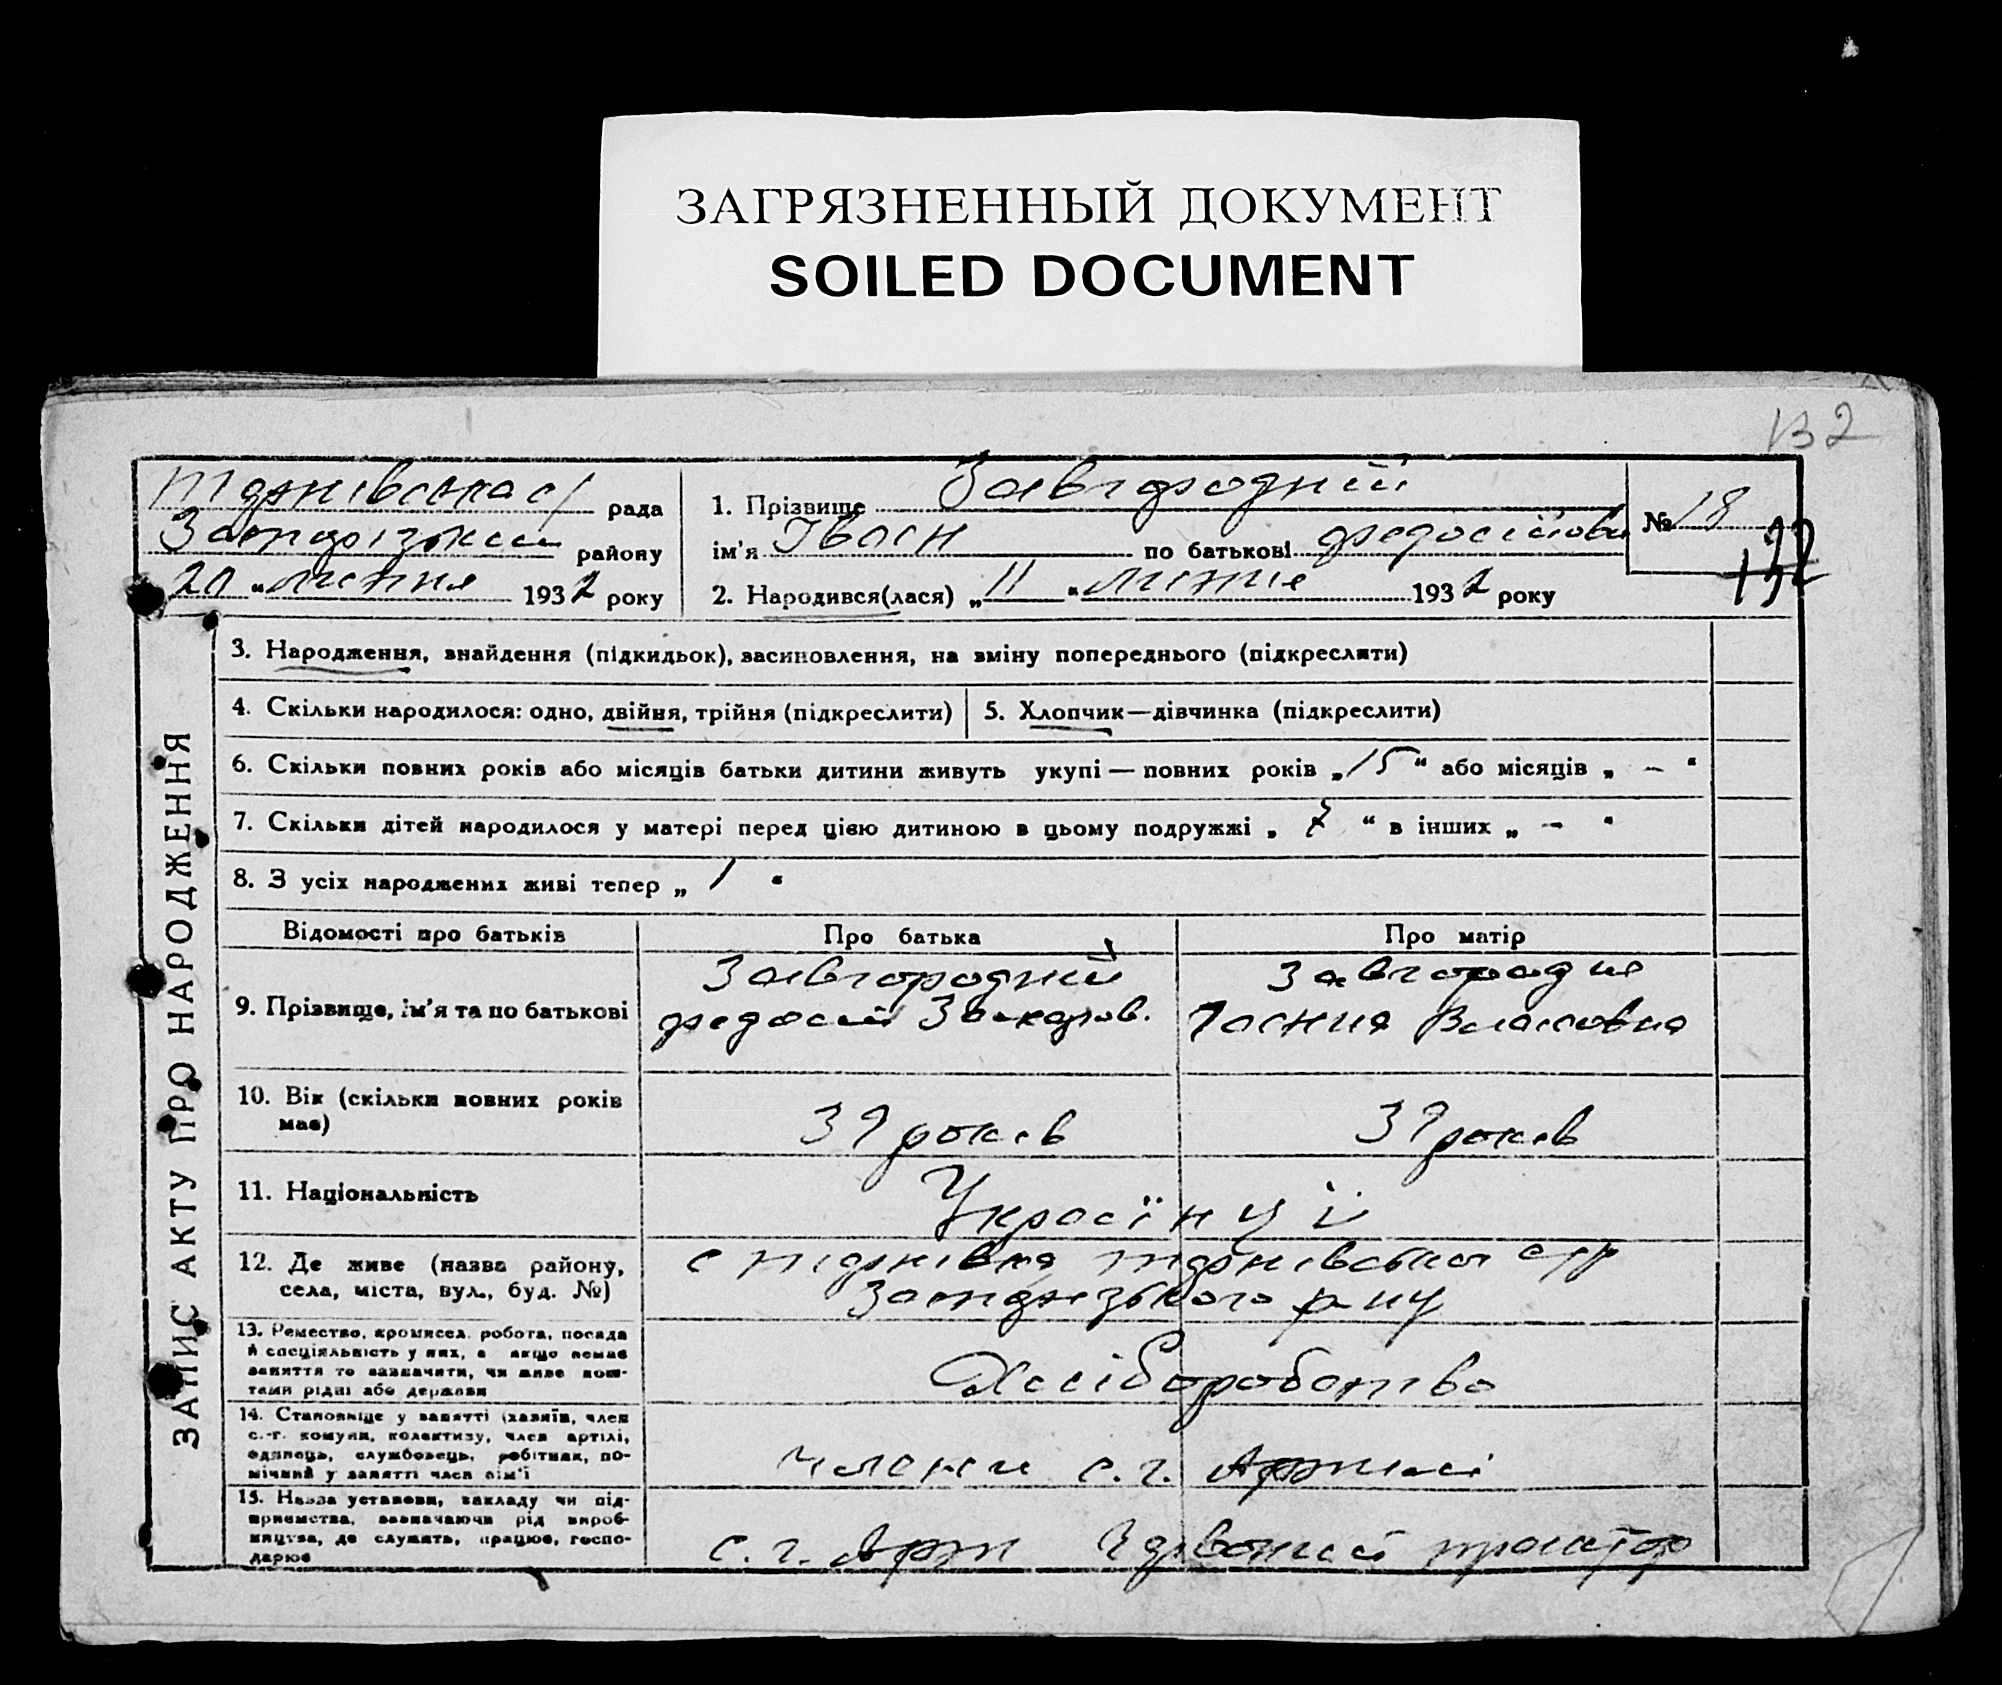 ЗАГРЯЗНЕННЫЙ ДОКУМЕНТ
SOILED DOCUMENT
132
рада
району
20 " липня 1932 року
1. Прізвище Завгородній
ім'я Іван по батькові Федосійови
2. Народився(лася) „ 11 " липня 1932 року
№ 18
132
ЗАПИС АКТУ ПРО НАРОДЖЕННЯ
3. Народження, знайдення (підкидьок), засиновлення, на зміну попереднього (підкреслити)
4. Скільки народилося: одно, двійня, трійня (підкреслити)
5. Хлопчик—дівчинка (підкреслити)
6. Скільки повних років або місяців батьки дитини живуть укупі — повних років „ 15 " або місяців „ – "
7. Скільки дітей народилося у матері перед цією дитиною в цьому подружжі „ 7 " в інших „ – "
8. З усіх народжених живі тепер „ 1 "
Відомості про батьків
Про батька
Про матір
9. Прізвище, ім'я та по батькові
Завгородний
Федосій Захаров.
Завгородня
Власовна
10. Вік (скільки повних років
має)
39 років
39 років
11. Національність
Українці
12. Де живе (назва району,
села, міста, вул., буд. №)
с
р-ну
13. Ремество, промисел, робота, посада
й спеціяльність у них, а якщо немає
заняття то зазначити, чи живе кош-
тами рідні або держави
Хліборобство
14. Становище у занятті (хазяїн, член
с.-г. комуни, колективу, член артілі,
одинець, службовець, робітник, по-
мічний у занятті член сім'ї
члени с.г. Артилі
15. Назва установи, закладу чи під-
приємства, зазначаючи рід вироб-
ництва, де служить, працює, госпо-
дарює
с. г. Арт Червоний трактор